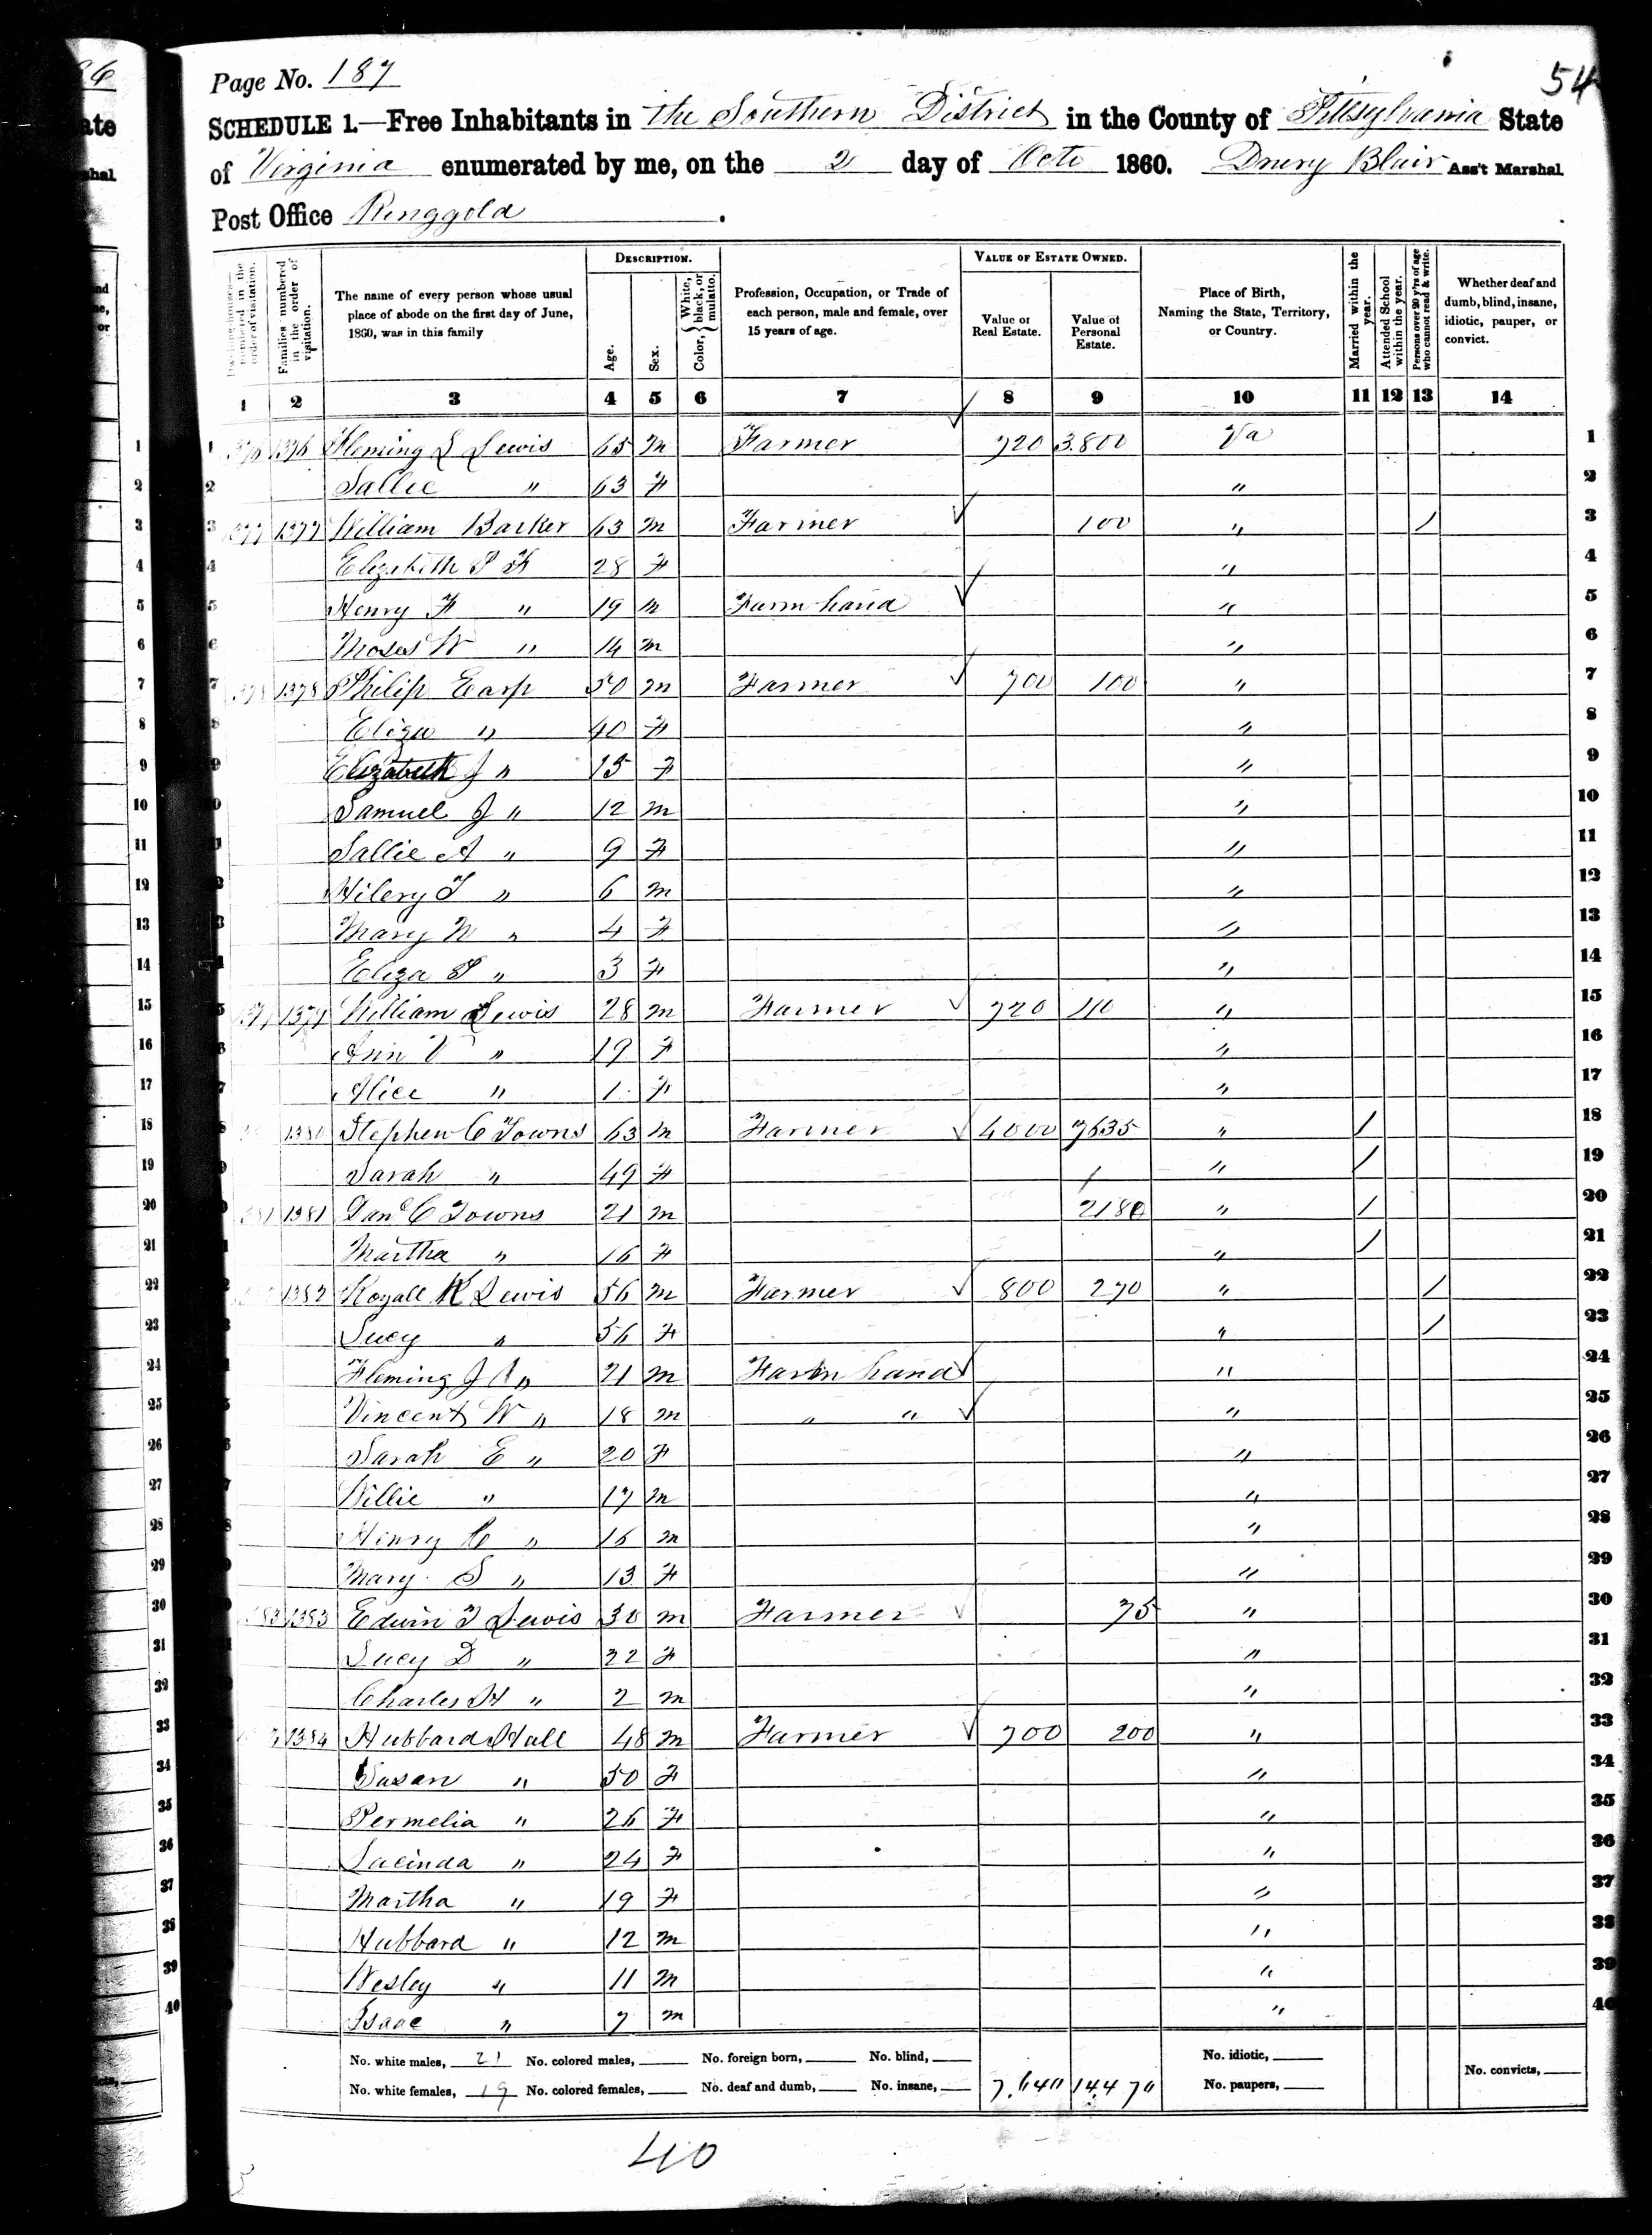 Page No. 187
54
SCHEDULE 1.—Free Inhabitants in the Southern District in the County of Pittsylvania State
of Virginia enumerated by me, on the 2 day of Octo 1860. Drury Blair Ass't Marshal
Post Office Ringgold
DESCRIPTION. VALUE OF ESTATE OWNED.
Dwelling-houses—numbered in the order of visitation. Families numbered in the order of visitation. The name of every person whose usual place of abode on the first day of June, 1860, was in this family Age. Sex. Color, { White, black, or mulatto. Profession, Occupation, or Trade of each person, male and female, over 15 years of age. Value of Real Estate. Value of Personal Estate. Place of Birth, Naming the State, Territory, or Country. Married within the year. Attended School within the year. Persons over 20 y'rs of age who cannot read & write. Whether deaf and dumb, blind, insane, idiotic, pauper, or convict.
1 2 3 4 5 6 7 8 9 10 11 12 13 14
1 1376 1376 Fleming L Lewis 65 m Farmer 720 3.800 Va 1
2 Sallie " 63 F " 2
3 1377 1377 William Barker 63 m Farmer 100 " / 3
4 Elizabeth P F 28 F " 4
5 Henry F " 19 m Farm hand " 5
6 Moses W " 14 m " 6
7 1378 1378 Philip Earp 50 m Farmer 700 100 " 7
8 Eliza " 40 F " 8
9 Elizabeth J " 15 F " 9
10 Samuel J " 12 m " 10
11 Sallie A " 9 F " 11
12 Hilery T " 6 m " 12
13 Mary N " 4 F " 13
14 Eliza P " 3 F " 14
15 1379 1379 William Lewis 28 m Farmer 720 110 " 15
16 Ann V " 19 F " 16
17 Alice " 1 F " 17
18 1380 Stephen C Towns 63 m Farmer 4000 7635 " / 18
19 Sarah " 49 F " / 19
20 1381 1381 Dan C Towns 21 m 2180 " / 20
21 Martha " 16 F " / 21
22 1382 Royall K Lewis 56 m Farmer 800 270 " / 22
23 Lucy " 56 F " / 23
24 Fleming J " 21 m Farm hand " 24
25 Vincent W " 18 m " " " 25
26 Sarah E " 20 F " 26
27 Willie " 17 m " 27
28 Henry C " 16 m " 28
29 Mary S " 13 F " 29
30 1383 1383 Edwin T Lewis 30 m Farmer 75 " 30
31 Lucy D " 22 F " 31
32 Charles H " 2 m " 32
33 1384 Hubbard Hall 48 m Farmer 700 200 " 33
34 Susan " 50 F " 34
35 Permelia " 26 F " 35
36 Lucinda " 24 F " 36
37 Martha " 19 F " 37
38 Hubbard " 12 m " 38
39 Wesley " 11 m " 39
40 Isaac " 7 m " 40
No. white males, 21 No. colored males, No. foreign born, No. blind, No. idiotic, No. convicts,
No. white females, 19 No. colored females, No. deaf and dumb, No. insane, 7.640 14.470 No. paupers,
40